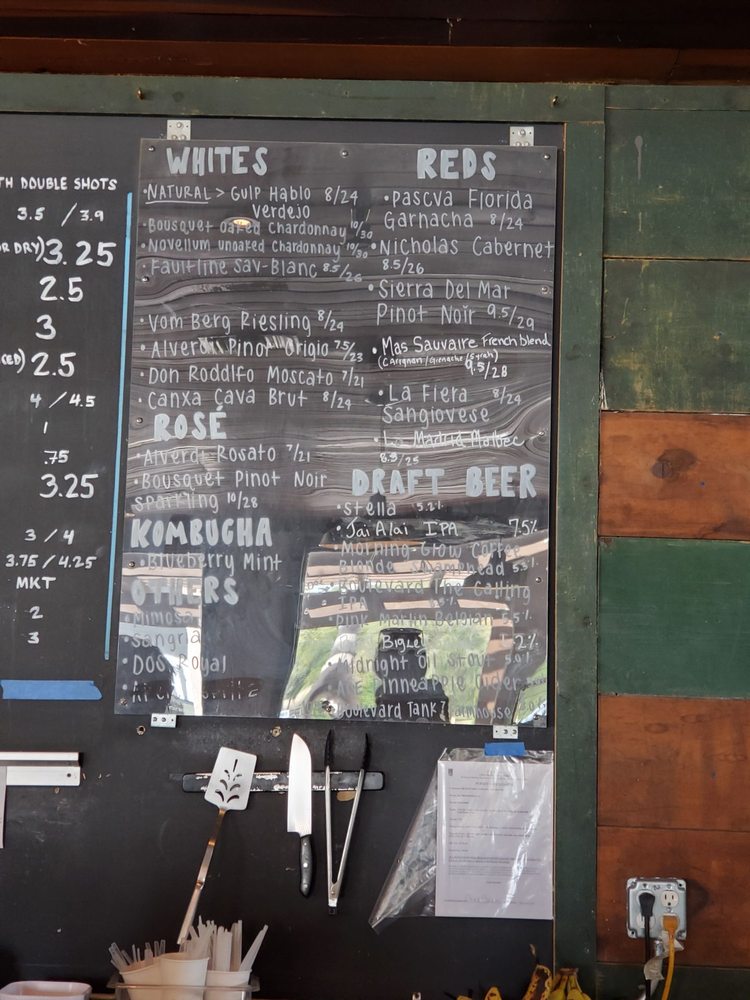 TH DOUBLE SHOTS
3.5 / 3.9
OR DRY) 3.25
2.5
3
2.5
4 / 4.5
1
.75
3.25
3 / 4
3.75 / 4.25
MKT
2
3
WHITES
• NATURAL > GUIP HABIO 8/24
VERDEJO
• BOUSQUET OAKED CHARDONNAY 10/30
• NOVELLUM UNOAKED CHARDONNAY 10/30
• FAULTLINE SAV-BLANC 8.5/26
• VOM BERG RIESLING 8/24
• ALVERDI PINOT GRIGIO 7.5/23
• DON RODOLFO MOSCATO 7/21
• CANXA CAVA BRUT 8/24
ROSÉ
• ALVERDI ROSATO 7/21
• BOUSQUET PINOT NOIR
SPARKLING 10/28
KOMBUCHA
• BLUEBERRY MINT
OTHERS
• MIMOSA
• SANGRIA
• DOS ROYAL
REDS
• PASCVA FLORIDA
GARNACHA 8/24
• NICHOLAS CABERNET
8.5/26
• SIERRA DEL MAR
PINOT NOIR 9.5/29
• MAS SAUVAIRE FRENCH BLEND
(CARIGNAN/GRENACHE/SYRAH)
9.5/28
• LA FIERA 8/24
SANGIOVESE
• LA MADRID MALBEC
8.3/25
DRAFT BEER
• STELLA 5.2%
• JAI ALAI IPA 7.5%
• MORNING GLOW COFFEE
BLONDE SWAMPHEAD 5.3%
• BOULEVARD THE CALLING
IPA
• PINK MARTIN BELGIAN 5.5%
BIG LEG 5.2%
MIDNIGHT OIL STOUT 5.0%
ACE PINEAPPLE CIDER
BOULEVARD TANK 7 FARMHOUSE